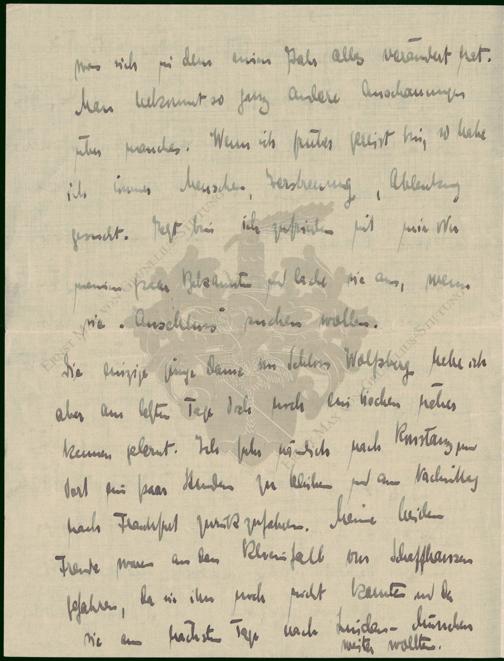 was sich in dem einen Jahr alles verändert hat.
Man bekommt so ganz andere Anschauungen
über manches. Wenn ich früher gereist bin, so habe
ich immer Menschen, Zerstreuung, Ablenkung
gesucht. Jetzt bin ich zufrieden mit mir oder
meinen paar Bekannten und lache sie aus, wenn
sie "Anschluss" suchen wollen.
Die einzige junge Dame im Schloss Wolfsberg habe ich
aber am letzten Tage doch noch ein bischen näher
kennen gelernt. Ich fuhr nämlich nach Konstanz um
dort ein paar Stunden zu bleiben und am Nachmittag
nach Frankfurt zurückzufahren. Meine beiden
Freunde waren an den Rheinfall von Schaffhausen
gefahren, da sie ihn noch nicht kannten und da
sie am nächsten Tage nach Lindau - München
weiter wollten.
ERNST MAY VON STIFTUNG